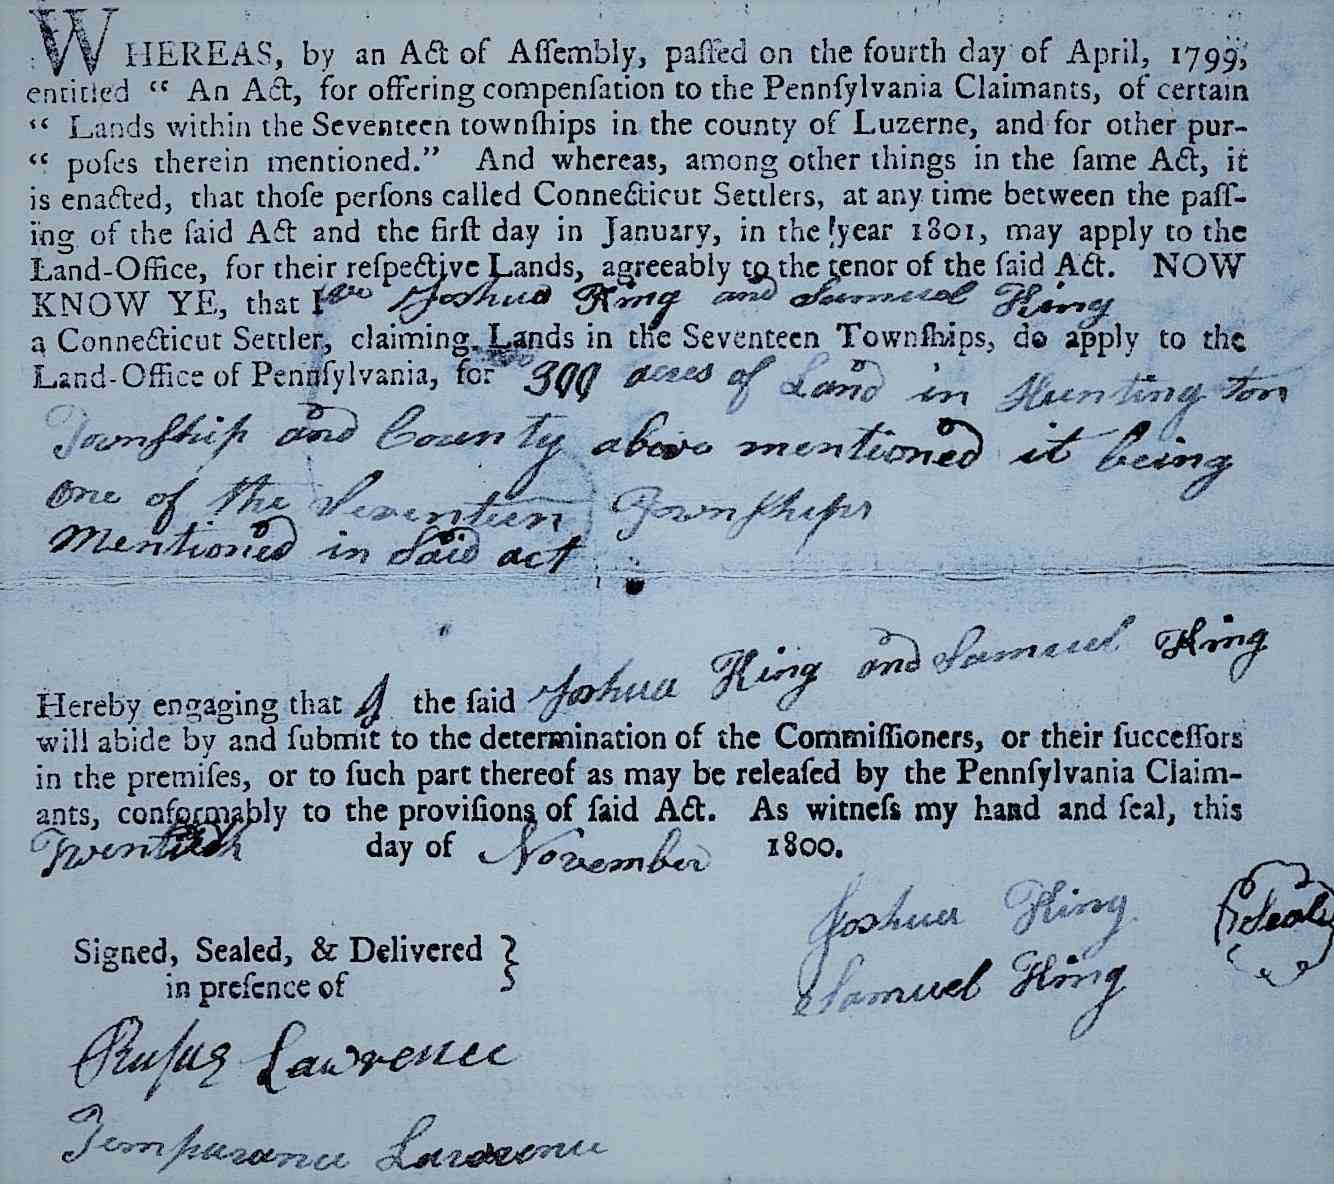 WHEREAS, by an Act of Aſſembly, paſſed on the fourth day of April, 1799,
entitled “ An Act, for offering compenſation to the Pennſylvania Claimants, of certain
“ Lands within the Seventeen townſhips in the county of Luzerne, and for other pur-
“ poſes therein mentioned.” And whereas, among other things in the ſame Act, it
is enacted, that thoſe perſons called Connecticut Settlers, at any time between the paſſ-
ing of the ſaid Act and the firſt day in January, in the year 1801, may apply to the
Land-Office, for their reſpective Lands, agreeably to the tenor of the ſaid Act. NOW
KNOW YE, that we Joshua King and Samuel King
a Connecticut Settler, claiming Lands in the Seventeen Townſhips, do apply to the
Land-Office of Pennſylvania, for 300 acres of Land in Huntington
Township and County above mentioned it being
one of the Seventeen Townships
Mentioned in Said act
Hereby engaging that I the ſaid Joshua King and Samuel King
will abide by and ſubmit to the determination of the Commiſſioners, or their ſucceſſors
in the premiſes, or to ſuch part thereof as may be releaſed by the Pennſylvania Claim-
ants, conformably to the proviſions of ſaid Act. As witneſs my hand and ſeal, this
Twentieth day of November 1800.
Joshua King Seal
Signed, Sealed, & Delivered
in preſence of
Samuel King
Rufus Lawrence
Temparance Lawrence